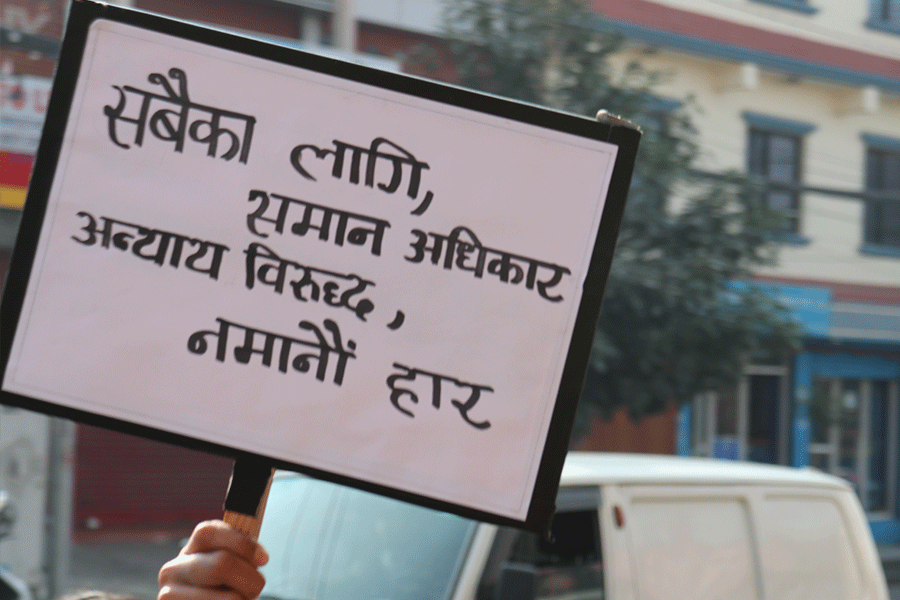 सबैका लागि,
समान अधिकार
अन्याय विरुद्ध,
नमानौं हार